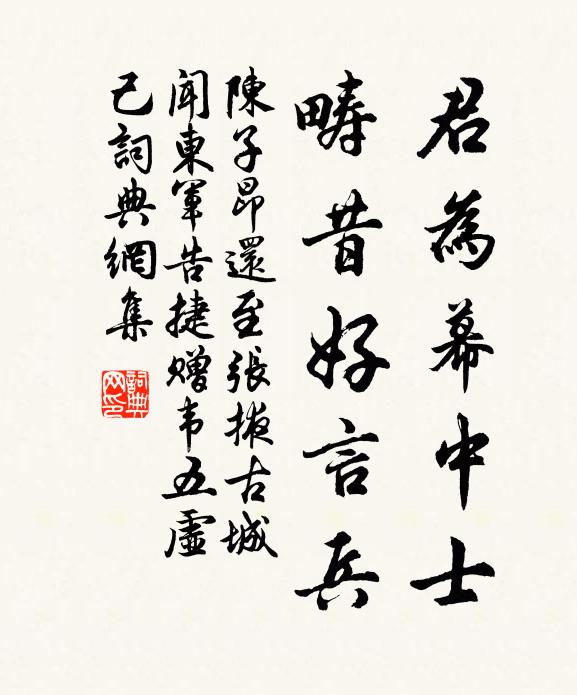 君為幕中士
疇昔好言兵
陳子昂還至張掖古城
聞東軍告捷贈韦五虛
己詞典網集
詞典
网印